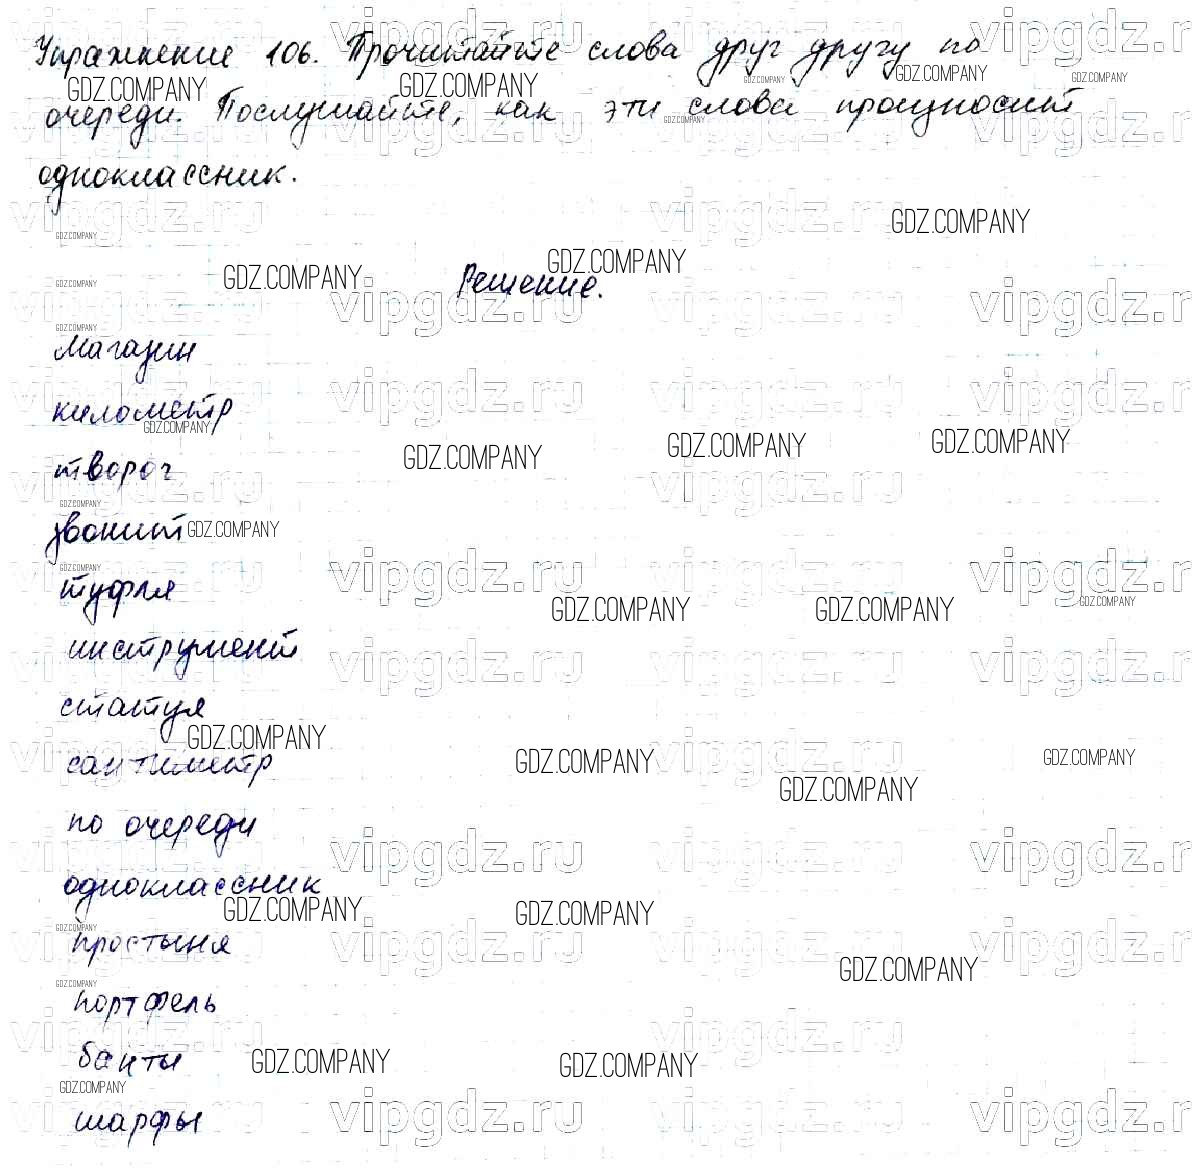 Упражнение 106. Прочитайте слова друг другу по
очереди. Послушайте, как эти слова произносит
одноклассник.
Решение.
магазин
километр
творог
звонит
туфля
инструмент
статуя
сантиметр
по очереди
одноклассник
простыня
портфель
банты
шарфы